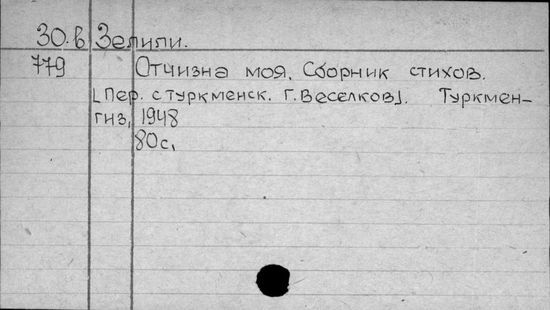 30.в Зелили.
779 Отчизна моя. Сборник стихов.
[Пер. с туркменск. Г. Веселков]. Туркмен-
гиз, 1948
80с.